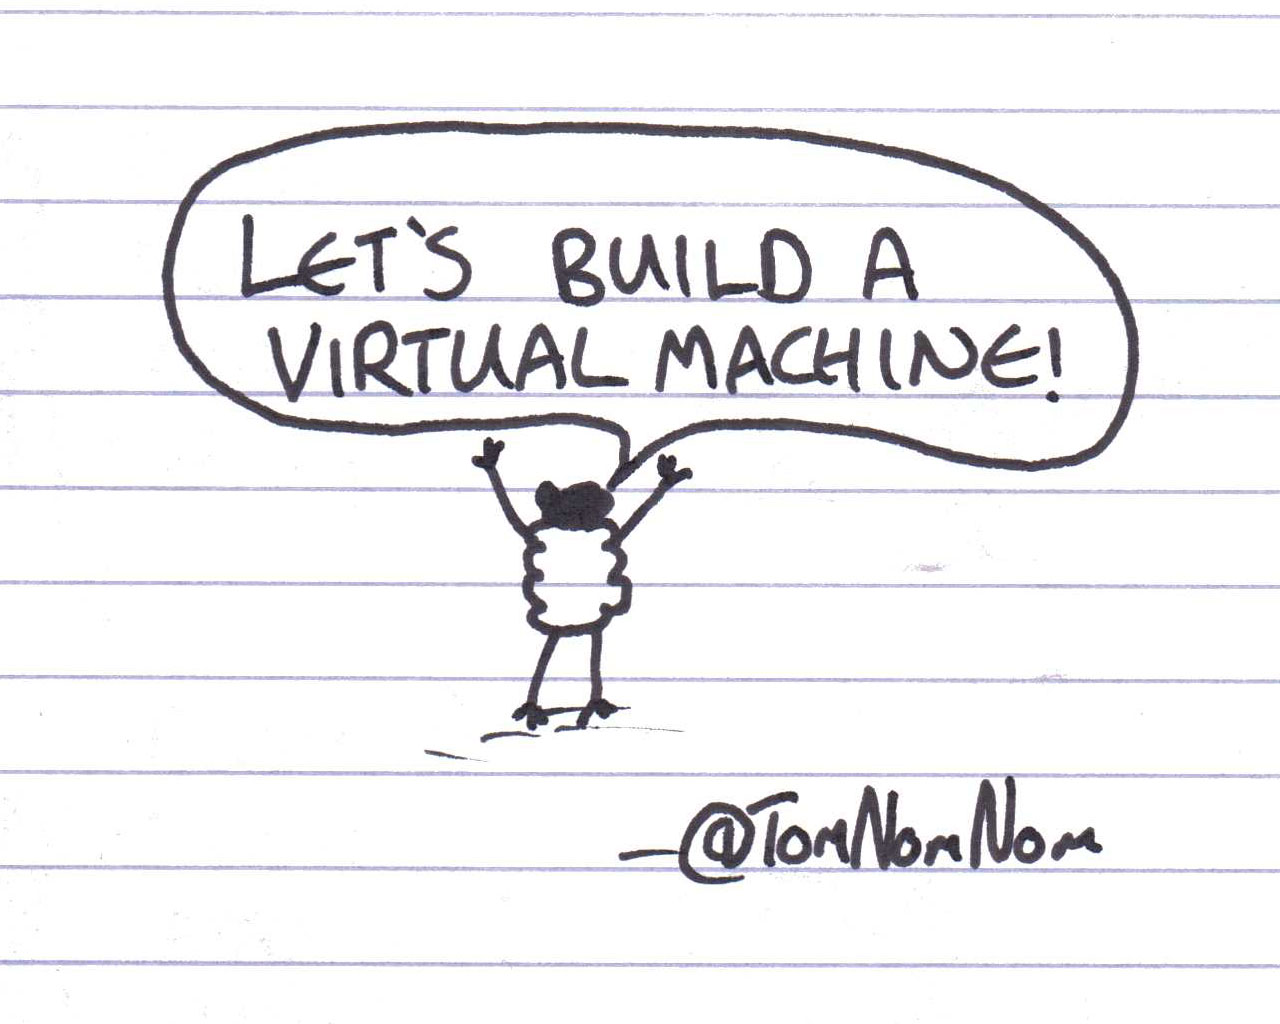 LET'S BUILD A
VIRTUAL MACHINE!
—@TomNomNom